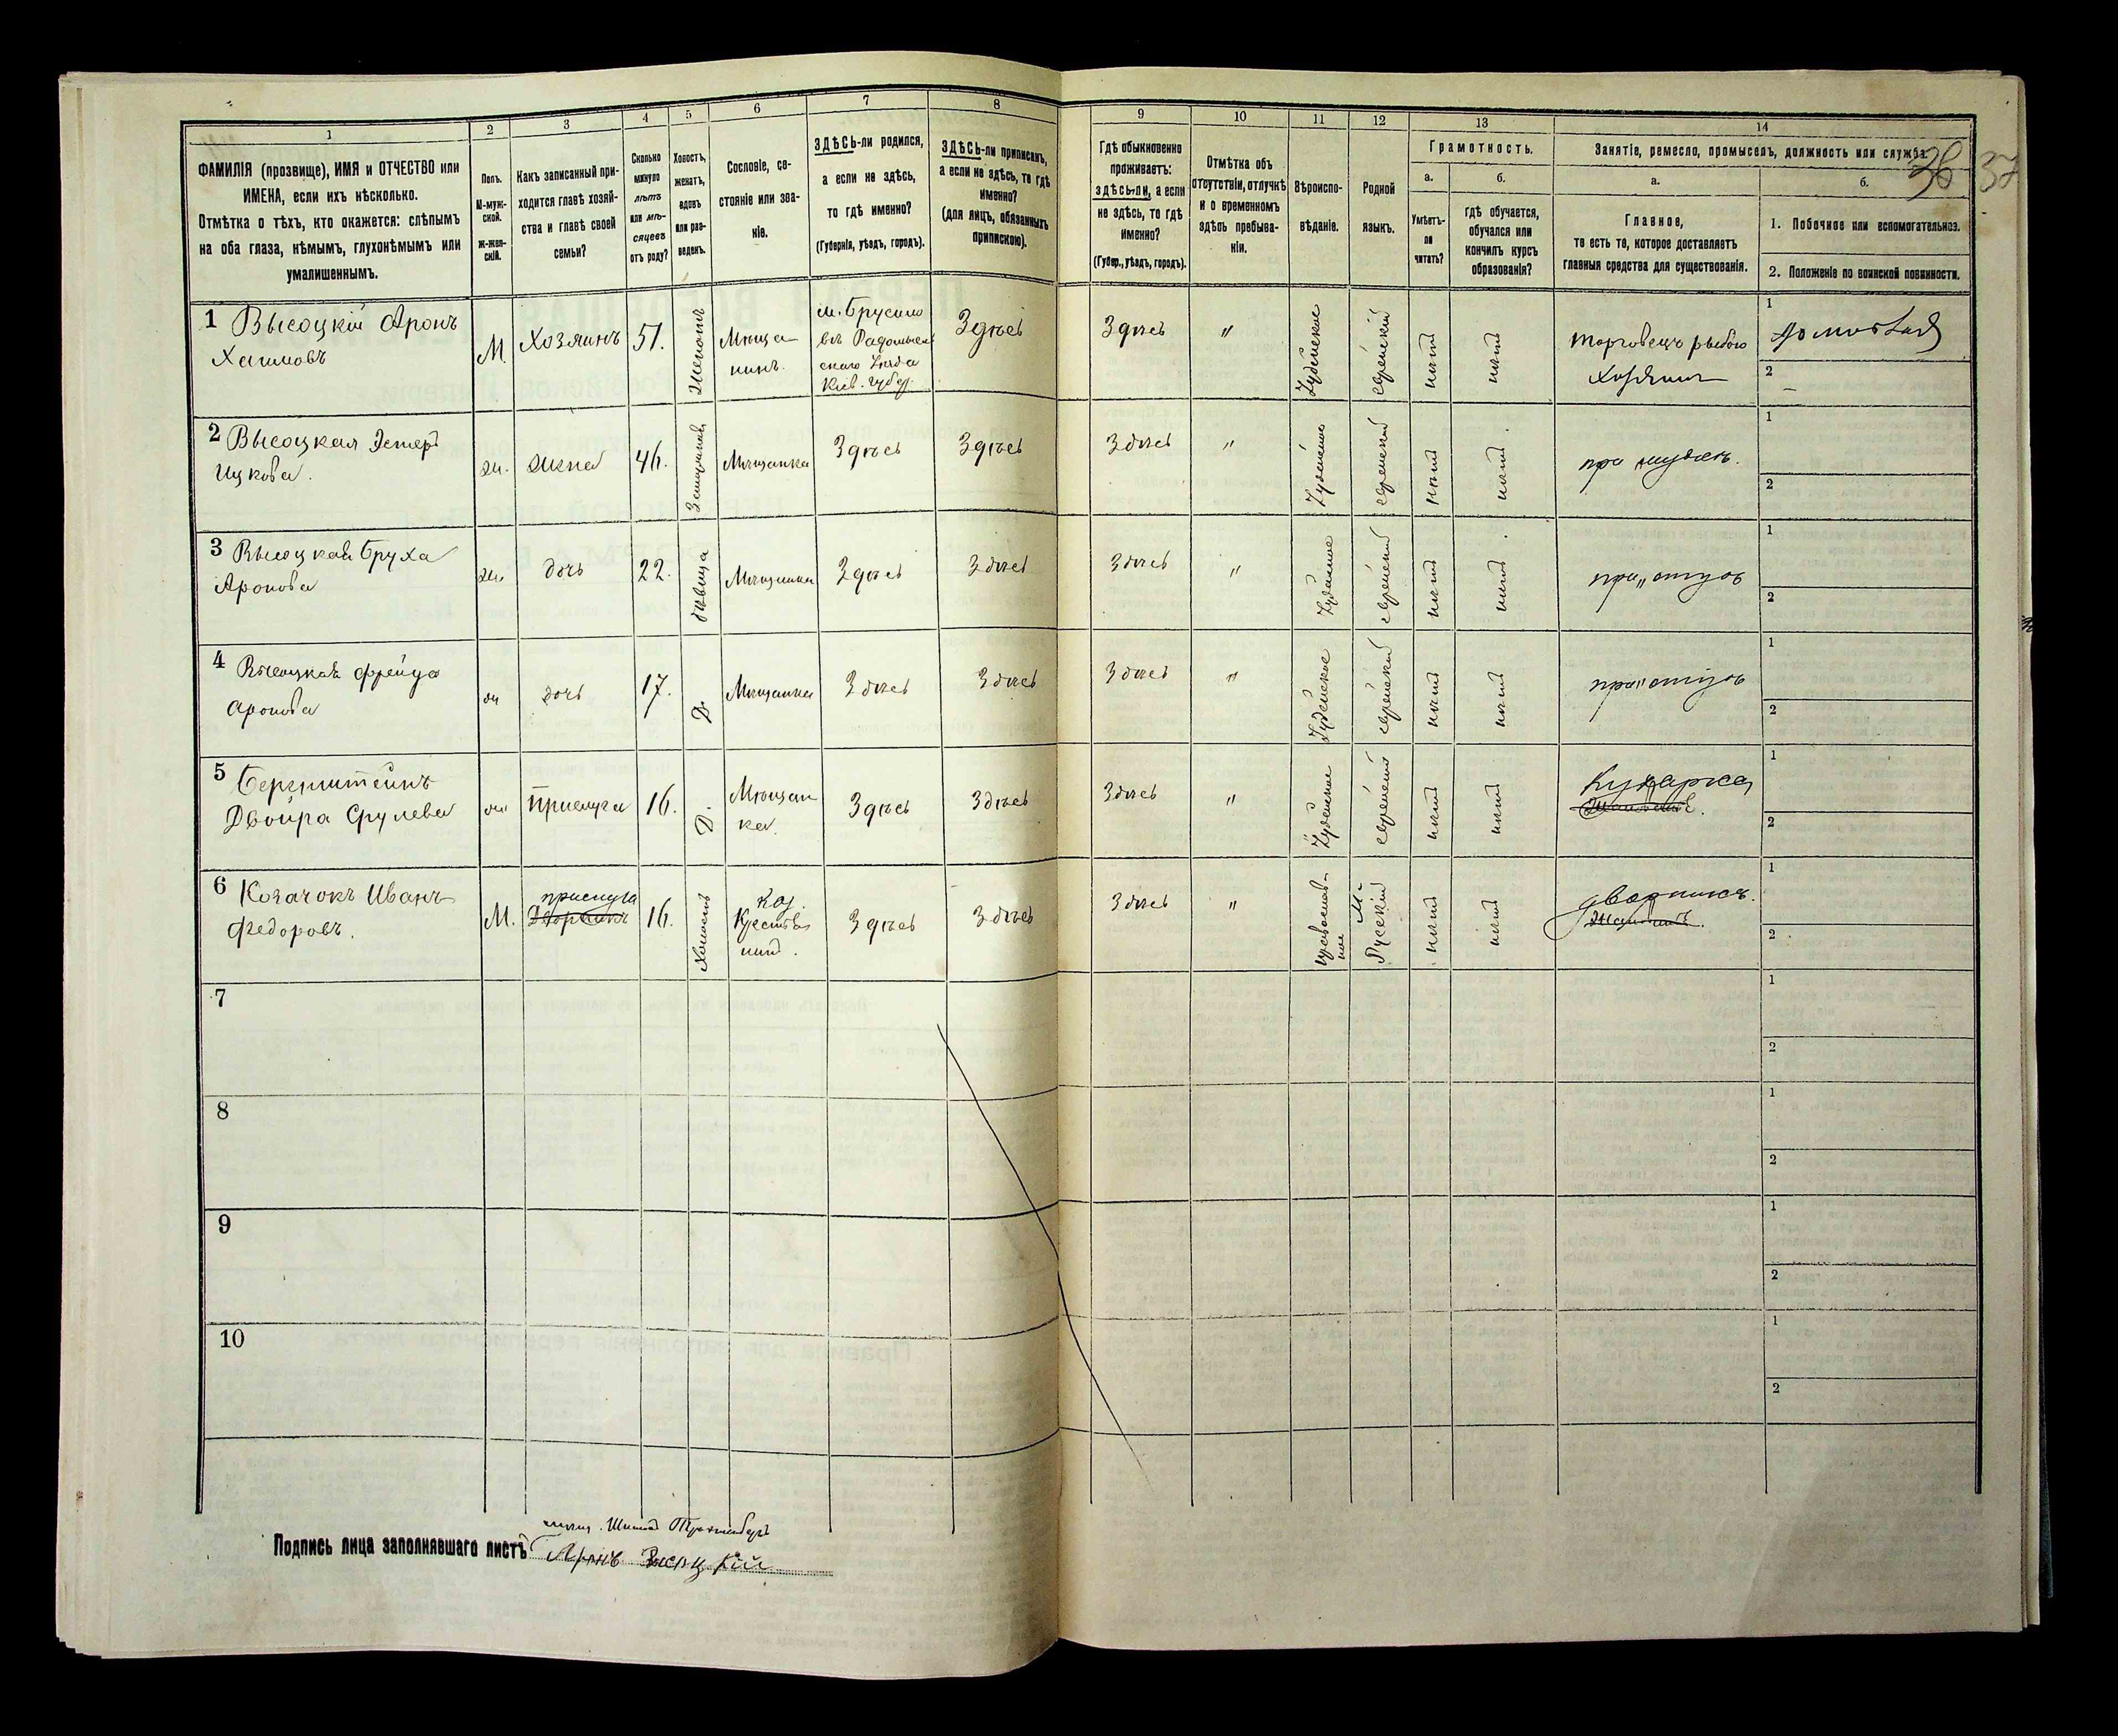 36 37
1 2 3 4 5 6 7 8 9 10 11 12 13 14
ФАМИЛІЯ (прозвище), ИМЯ и ОТЧЕСТВО или
ИМЕНА, если ихъ нѣсколько.
Отмѣтка о тѣхъ, кто окажется: слѣпымъ
на оба глаза, нѣмымъ, глухонѣмымъ или
умалишеннымъ.
Полъ.
М-муж-
ской.
Ж-жен-
скій.
Какъ записанный при-
ходится главѣ хозяй-
ства и главѣ своей
семьи?
Сколько
минуло
лѣтъ
или мѣ-
сяцевъ
отъ роду?
Холостъ,
женатъ,
вдовъ
или раз-
веденъ.
Сословіе, со-
стояніе или зва-
ніе.
ЗДѢСЬ-ли родился,
а если не здѣсь,
то гдѣ именно?
(Губернія, уѣздъ, городъ).
ЗДѢСЬ-ли приписанъ,
а если не здѣсь, то гдѣ
именно?
(для лицъ, обязанныхъ
припискою).
Гдѣ обыкновенно
проживаетъ:
здѣсь-ли, а если
не здѣсь, то гдѣ
именно?
(Губер., уѣздъ, городъ).
Отмѣтка объ
отсутствіи, отлучкѣ
и о временномъ
здѣсь пребыва-
ніи.
Вѣроиспо-
вѣданіе.
Родной
языкъ.
Грамотность.
а. б.
Умѣетъ-
ли
читать?
Гдѣ обучается,
обучался или
кончилъ курсъ
образованія?
Занятіе, ремесло, промыселъ, должность или служба.
а. б.
Главное,
то есть то, которое доставляетъ
главныя средства для существованія.
1. Побочное или вспомогательное.
2. Положеніе по воинской повинности.
1 Высоцкій Аронъ
Хаимовъ
М. Хозяинъ 51. Женатъ
Мѣща-
нинъ.
м. Брусило
въ Радомысл
скаго уѣзда
Кіев. губер.
Здѣсь
Здѣсь "
Іудейское еврейскій нѣтъ нѣтъ
торговецъ рыбою
Хозяинъ
1
2 –
2 Высоцкая Эстеръ
Ицкова.
ж. жена 46. Замужняя Мѣщанка Здѣсь Здѣсь
Здѣсь " Іудейское еврейскій нѣтъ нѣтъ. при мужѣ.
1
2
3 Высоцкая Бруха
Аронова
ж. дочь 22. дѣвица Мѣщанка Здѣсь Здѣсь
Здѣсь " Іудейское еврейскій нѣтъ нѣтъ. при отцѣ
1
2
4 Высоцкая Фрейда
Аронова
ж дочь 17. Д. Мѣщанка Здѣсь Здѣсь
Здѣсь " Іудейское еврейскій нѣтъ нѣтъ при отцѣ
1
2
5 Бергштейнъ
Двойра Срулева
ж Прислуга 16. Д.
Мѣщан
ка.
Здѣсь Здѣсь
Здѣсь " Іудейское еврейскій нѣтъ нѣтъ
Кухарка
1
2
6 Козачокъ Иванъ
Федоровъ.
М.
прислуга
Дворникъ
16. Холостъ
коз.
Крестья
нинъ.
Здѣсь Здѣсь
Здѣсь "
православ-
ное
М.
Русскій
нѣтъ нѣтъ
дворникъ.
1
2
7
1
2
8
1
2
9
1
2
10
1
2
Подпись лица заполнявшаго листъ
Аронъ Высоцкій